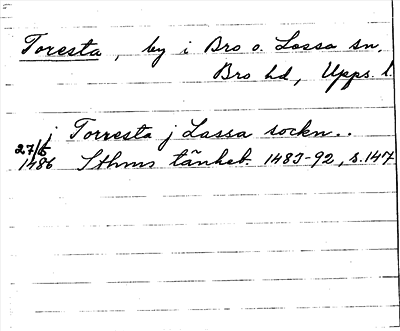 Toresta, by i Bro o. Lossa sn,
Bro hd, Upps. l.
j Torresta j Lassa sockn..
27/5 1486 Sthms tänkeb. 1483-92, s. 147